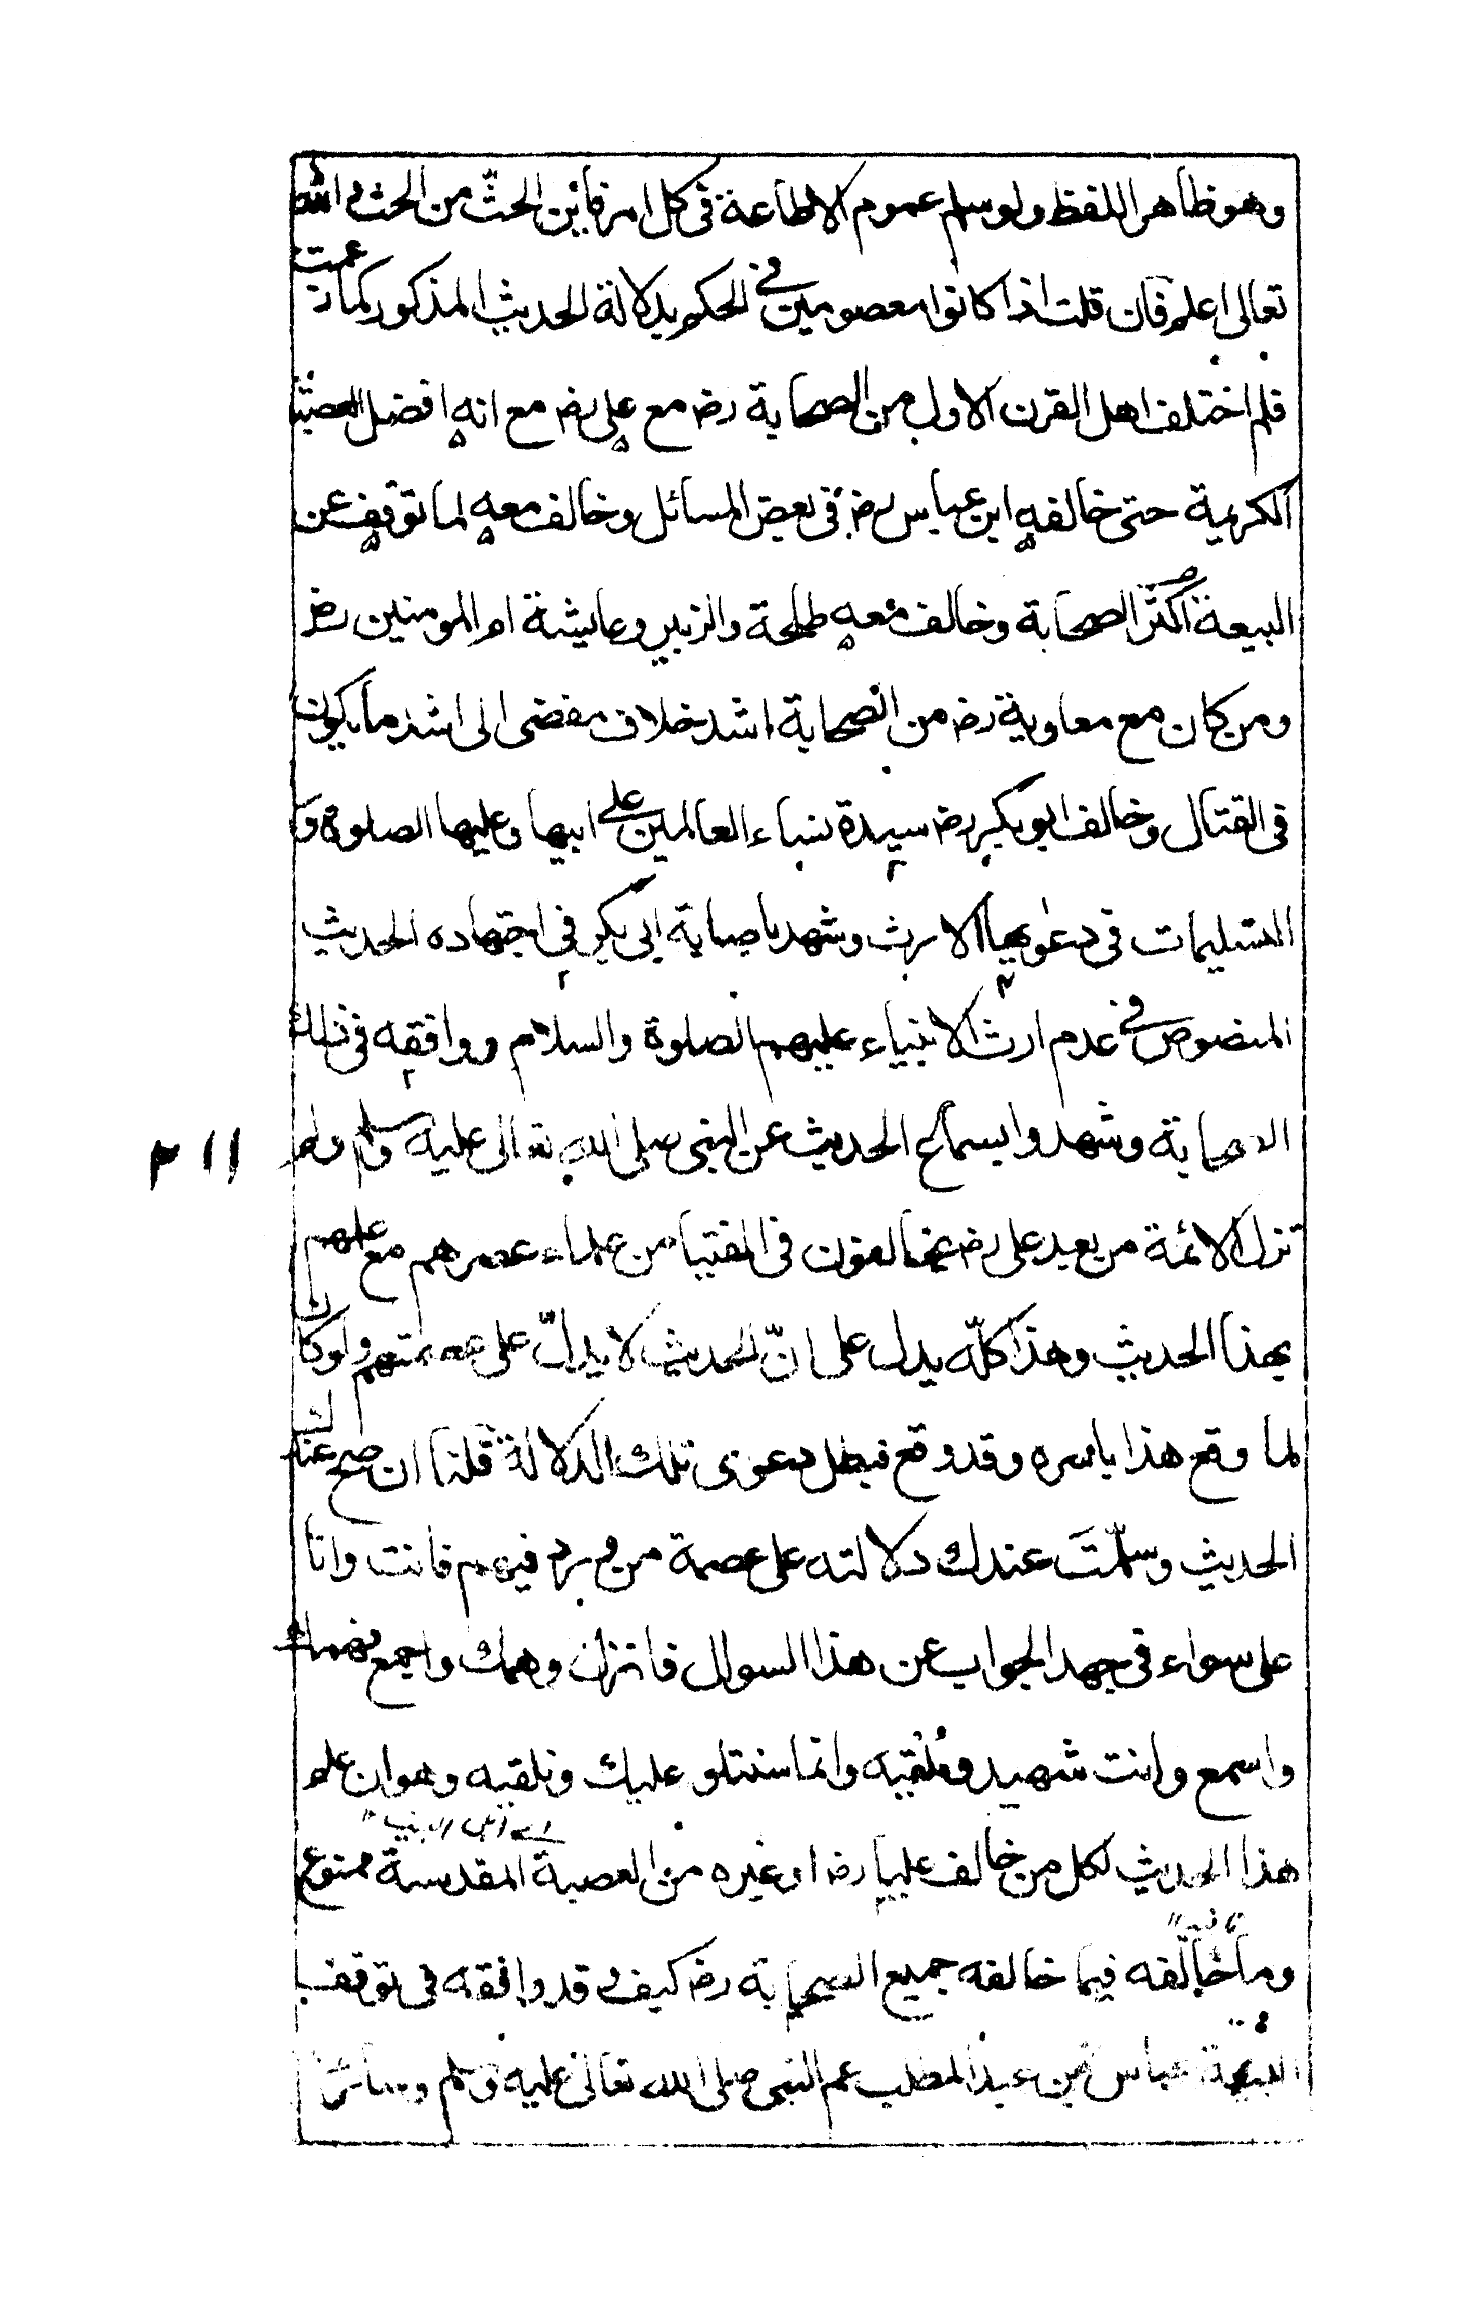 وهو ظاهر اللفظ ولو سلم عموم الاطاعة فى كل امر فاين الحثّ من الحث والله
تعالى اعلم فان قلت اذا كانوا معصومين فى الحكم بدلالة الحديث المذكور كما زعمت
فلم اختلف اهل القرن الاول من الصحابة رض مع على رض مع انه افضل العصبة
الكريمة حتى خالفه ابن عباس رض فى بعض المسائل وخالف معه لما توقف عن
البيعة اكثر الصحابة وخالف معه طلحة والزبير وعايشة ام المومنين رض
ومن كان مع معاوية رض من الصحابة اشد خلاف مفضى الى اشد ما يكون
فى القتال وخالف ابو بكر رض سيدة نساء العالمين على ابيها وعليها الصلوة و
التسليمات فى دعويها الارث وشهد باصابة ابى بكر فى اجتهاده الحديث
المنصوص فى عدم ارث الانبياء عليهم الصلوة والسلام ووافقه فى ذلك
الصحابة وشهدوا بسماع الحديث عن النبى صلى الله تعالى عليه وسلم ولم
تزل الائمة من بعد على رض يخالفون فى الفتيا من علماء عصرهم مع علمهم
بهذا الحديث وهذا كلّه يدل على انّ الحديث لا يدلّ على عصمتهم ولو كان
لما وقع هذا باسره وقد وقع فبطل دعوى تلك الدلالة قلنا ان صح عندك
الحديث وسلّمتَ عندك دلالته على عصمة من ورد فيهم فانت وانا
على سواء فى جهد الجواب عن هذا السوال فاترك وهمك واجمع فهمك
واسمع وانت شهيد ومُلْقيه وانما سنتلو عليك ونلقيه وهو ان علم
اى اهل البيت ١٢
هذا الحديث لكل من خالف عليا رض او غيره من العصبة المقدسة ممنوع
نافيه ١٢
وما خالفه فيما خالفه جميع الصحابة رض كيف وقد وافقه فى توقف
البيعة عباس بن عبد المطلب عم النبى صلى الله تعالى عليه وسلم وسائر
٢١١